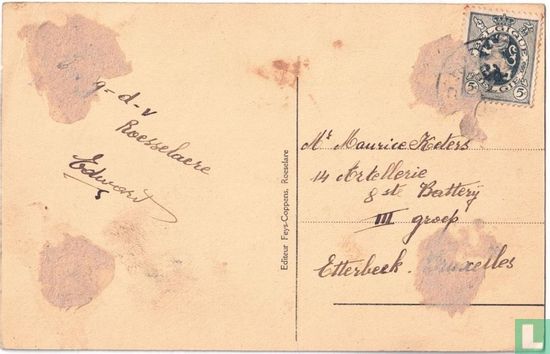 g-d-v
Roesselaere
Edward
Editeur Feys-Coppens, Roeselare
BELGIQUE
BELGIE
5c 5c
Mr Maurice Keters
14 Artellerie
8ste Batterij
III groep
Etterbeek. Bruxelles
L